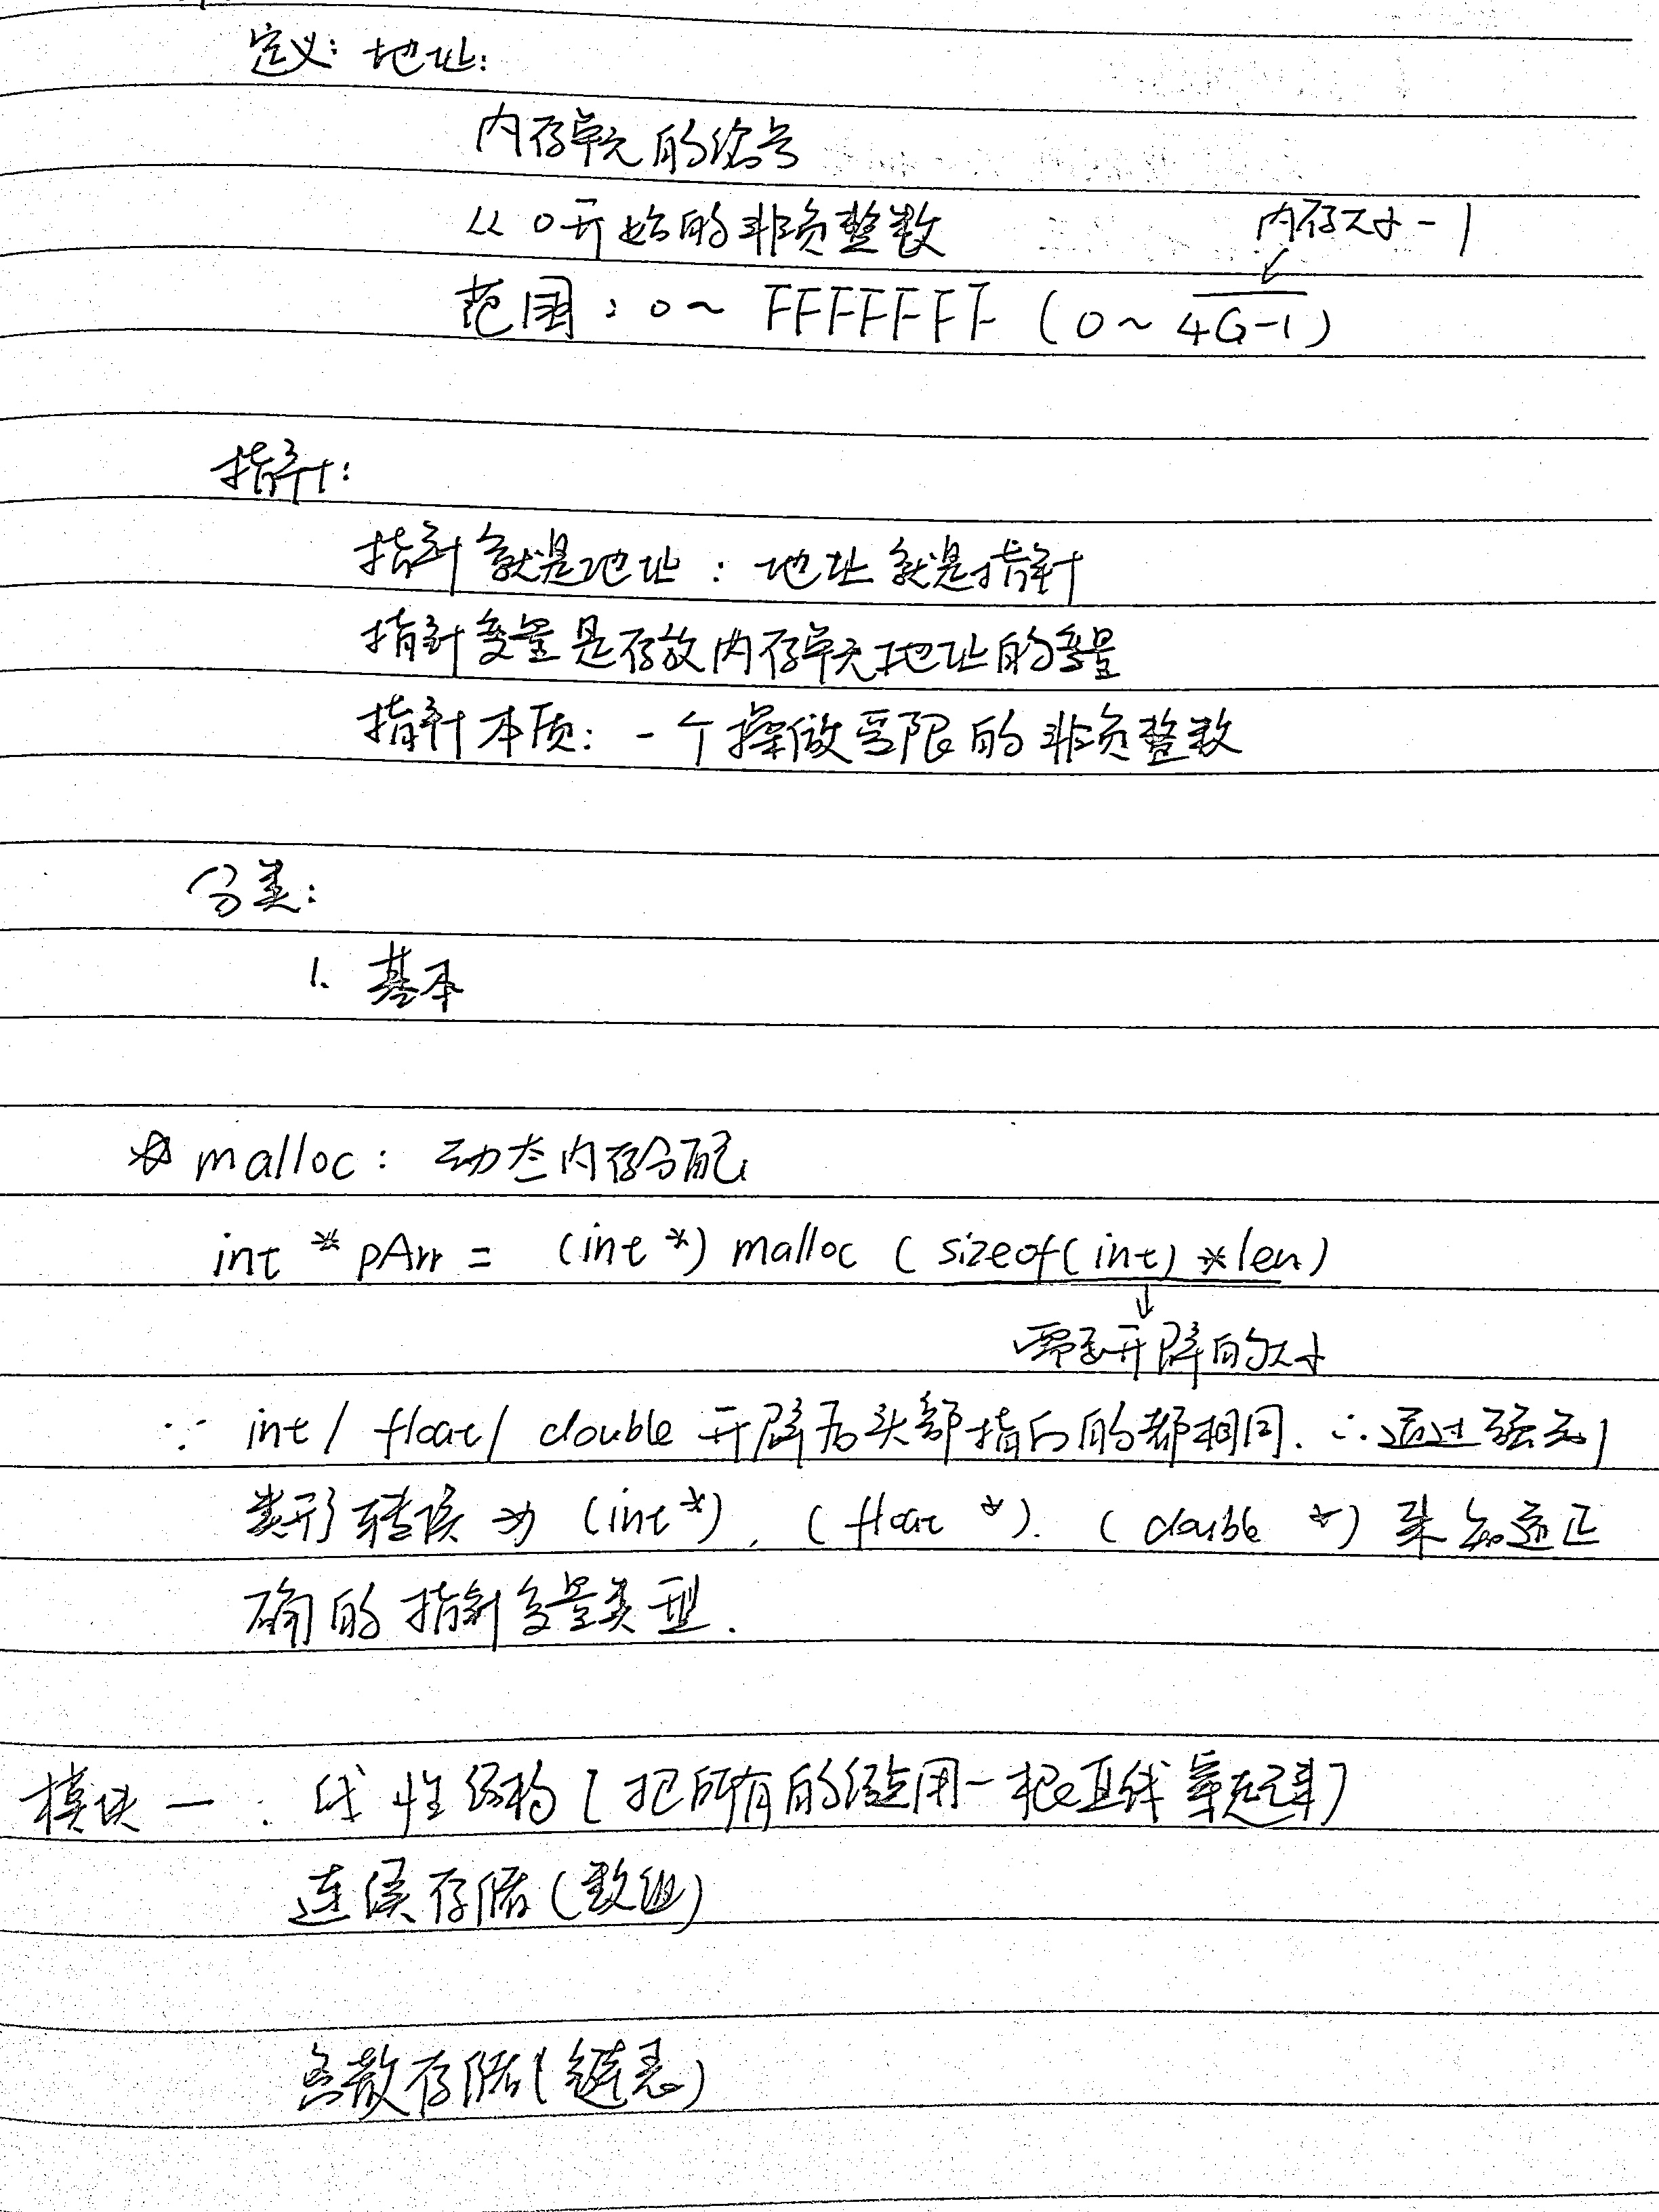 定义: 地址:
内存单元的编号
从0开始的非负整数
内存大小-1
范围: 0~ FFFFFFF (0~4G-1)
指针:
指针就是地址: 地址就是指针
指针变量是存放内存单元地址的变量
指针本质: 一个操做受限的非负整数
分类:
1. 基本
☆ malloc: 动态内存分配
int * pArr = (int *) malloc (sizeof(int) *len)
需要开辟的大小
∵ int/ float/ double 开辟后头部指向的都相同. ∴通过强制
类形转换为 (int*), (float *). (double *) 来知道正
确的指针变量类型.
模块一: 线性结构[把所有的结点用一根直线穿起来]
连续存储(数组)
离散存储(链表)